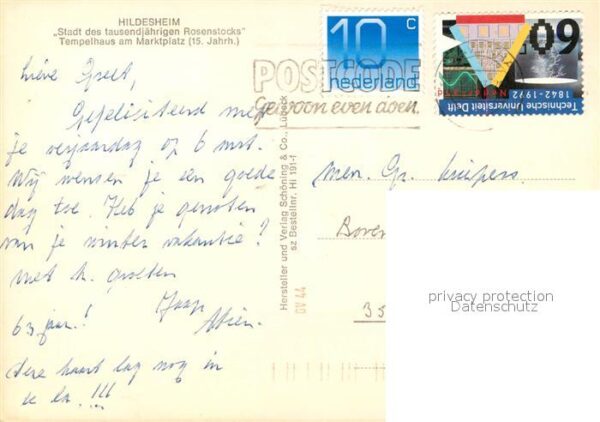 HILDESHEIM
„Stadt des tausendjährigen Rosenstocks"
Tempelhaus am Marktplatz (15. Jahrh.)
Lieve Greet,
Gefeliciteerd met
je verjaardag op 6 mrt.
Wij wensen je een goede
dag toe. Heb je genoten
van je winter vakantie?
met h. groeten
Jaap
63 jaar! Wien.
deze kaart lag nog in
de la.!!!
Hersteller und Verlag Schöning & Co., Lübeck
sz Bestellnr. Hi 191-f
GV 44
10 c
nederland
POSTCODE
Gewoon even doen.
60
Technische Universiteit Delft
1842-1992
mevr. Gr. Kuipers
Boven
35
privacy protection
Datenschutz